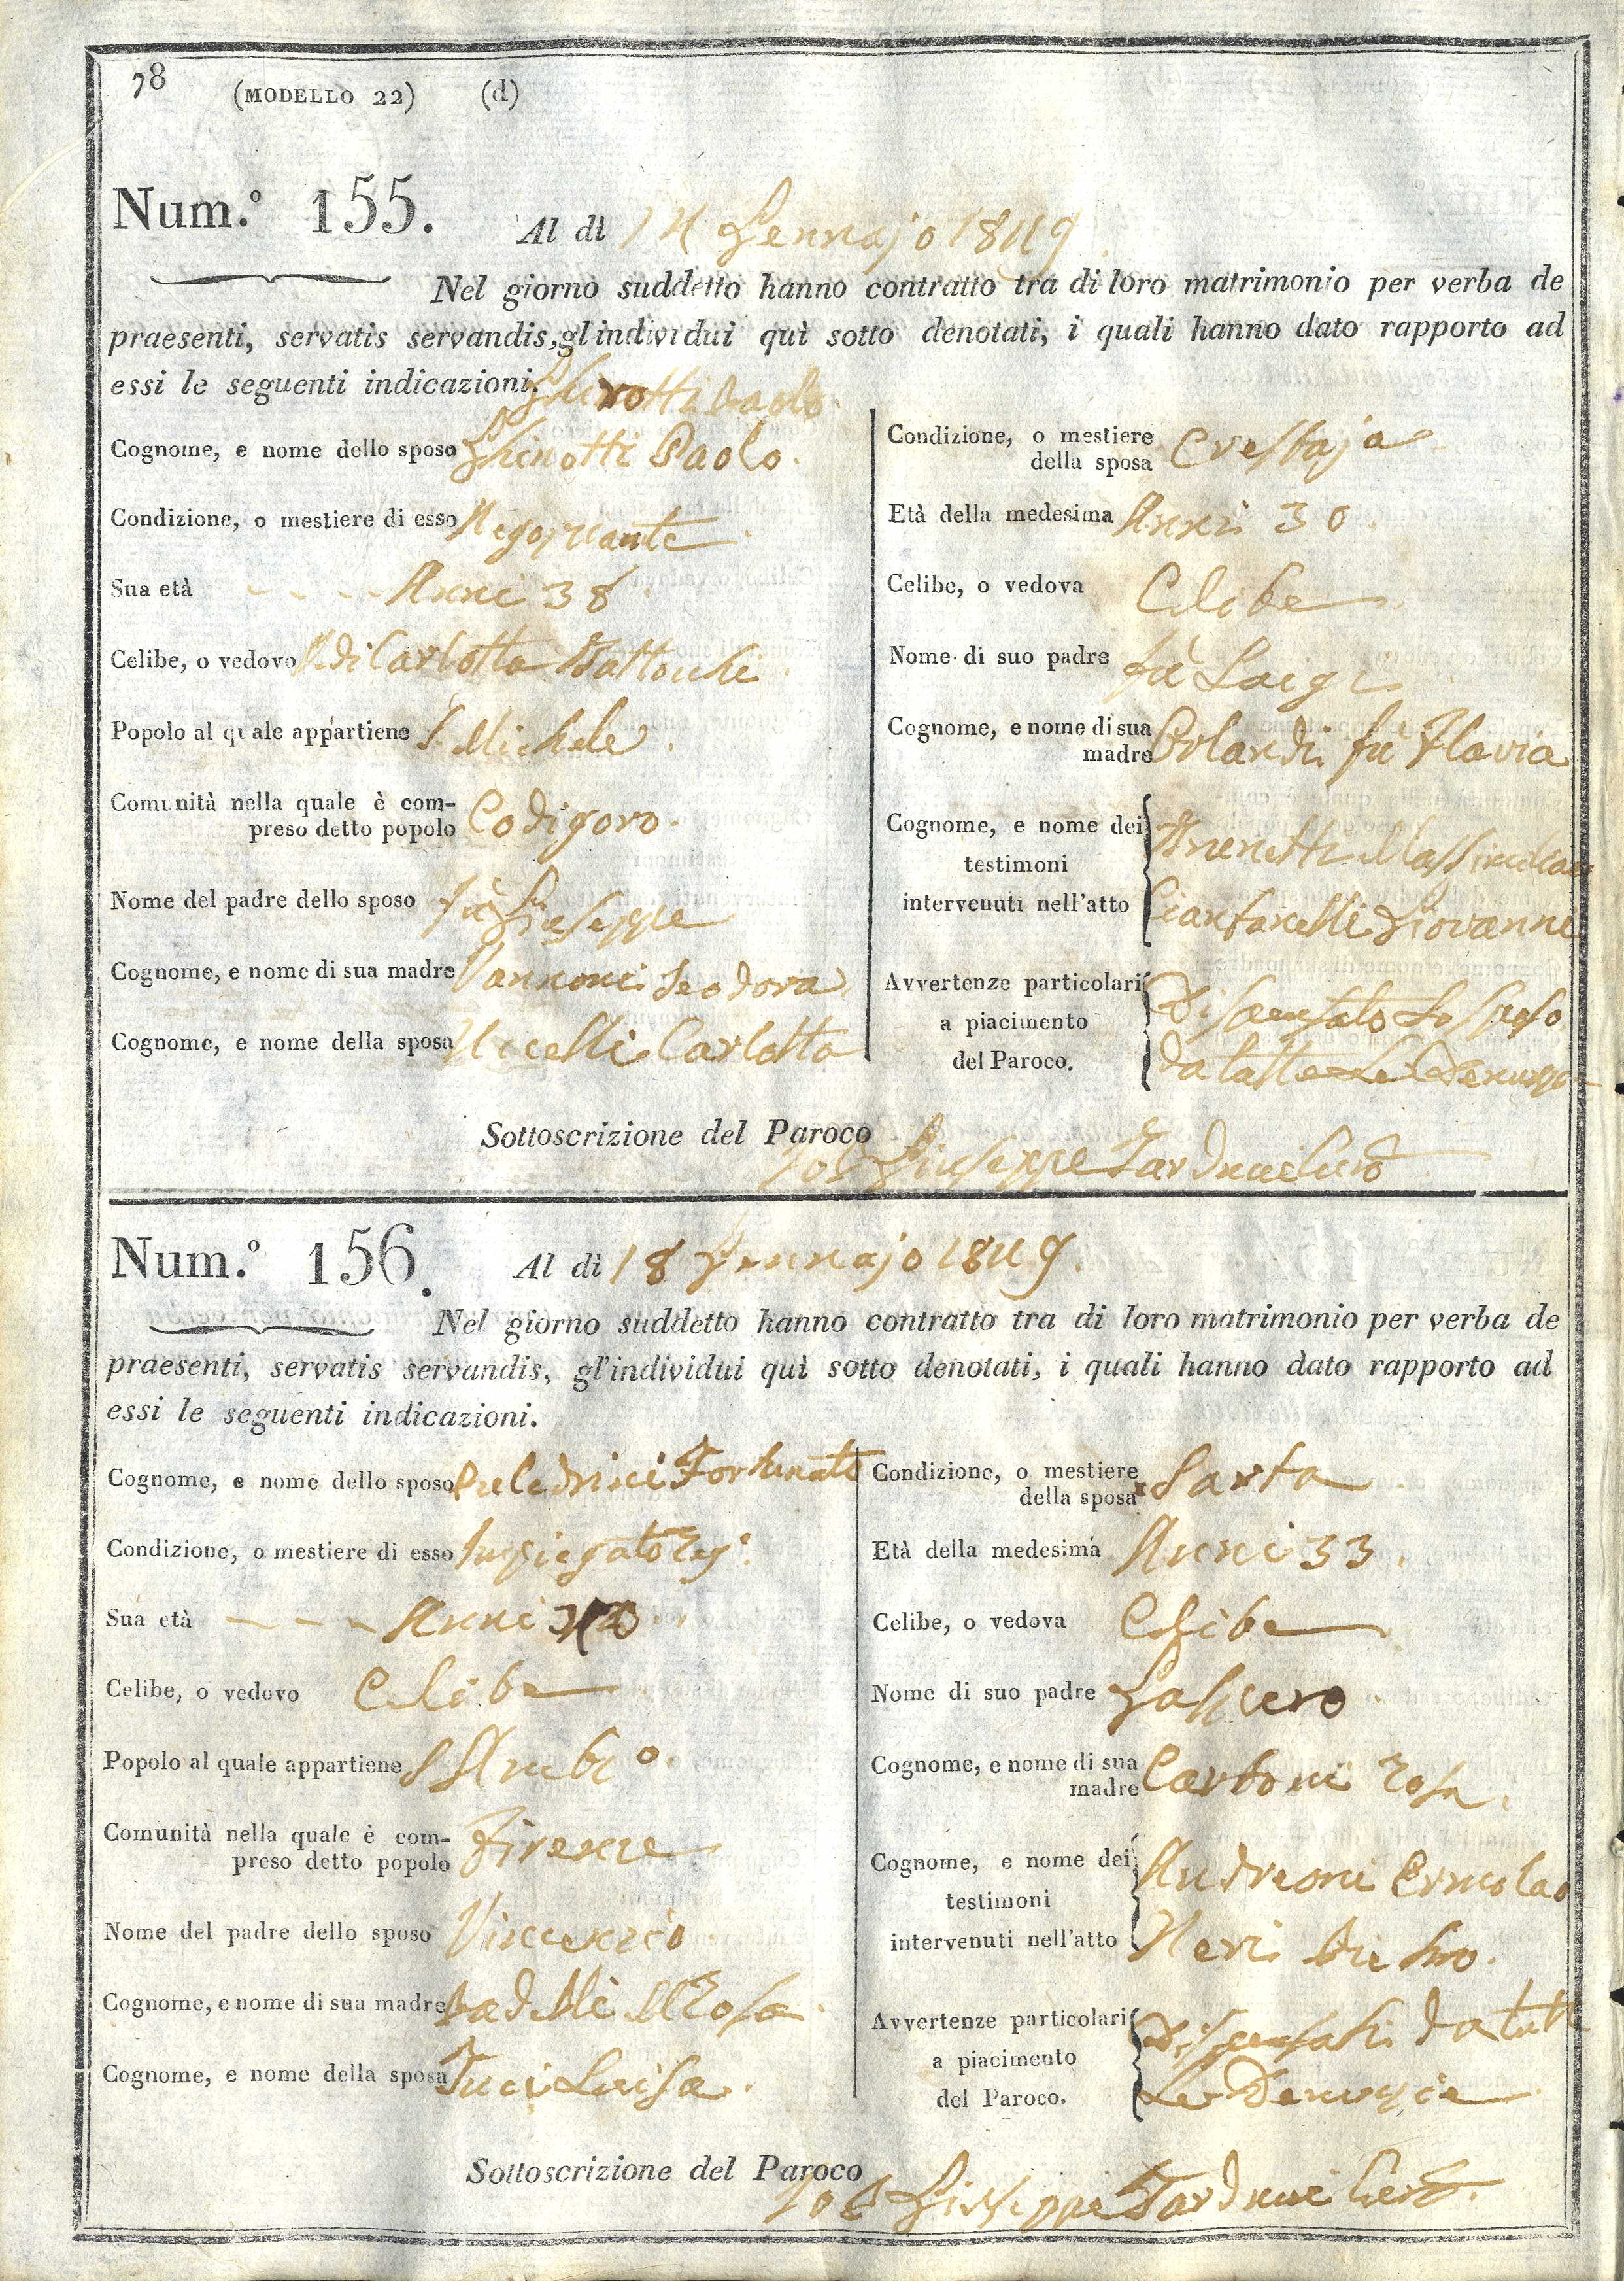 78 (MODELLO 22) (d)
Num.º 155. Al dì 14 Gennajo 1849.
Nel giorno suddetto hanno contratto tra di loro matrimonio per verba de
praesenti, servatis servandis, gl'individui quì sotto denotati, i quali hanno dato rapporto ad
essi le seguenti indicazioni.
Ghirotti Paolo
Cognome, e nome dello sposo Ghinotti Paolo.
Condizione, o mestiere di esso Negoziante
Sua età Anni 38
Celibe, o vedovo V. di Carlotta
Popolo al quale appartiene S. Michele
Comunità nella quale è com-
preso detto popolo Codigoro.
Nome del padre dello sposo fù Giuseppe
Cognome, e nome di sua madre Vannoni Teodora
Cognome, e nome della sposa Ucelli Carlotta
Condizione, o mestiere
della sposa Crestaja
Età della medesima Anni 30.
Celibe, o vedova Celibe
Nome di suo padre fù Luigi
Cognome, e nome di sua
madre Orlandi fù Flavia
Cognome, e nome dei
testimoni
intervenuti nell'atto
Cianfanelli Giovanni
Avvertenze particolari
a piacimento
del Paroco.
Dispensato Lo Sposo
da tutte Le Denunzie
Sottoscrizione del Paroco
Giuseppe Tarducci Curo
Num.º 156. Al dì 18 Gennajo 1849.
Nel giorno suddetto hanno contratto tra di loro matrimonio per verba de
praesenti, servatis servandis, gl'individui quì sotto denotati, i quali hanno dato rapporto ad
essi le seguenti indicazioni.
Cognome, e nome dello sposo Puledrini Fortunato
Condizione, o mestiere di esso Impiegato Reg.º
Sua età Anni
Celibe, o vedovo Celibe
Popolo al quale appartiene S Amb.º
Comunità nella quale è com-
preso detto popolo Firenze
Nome del padre dello sposo Vincenzio
Cognome, e nome di sua madre Badelli M Rosa
Cognome, e nome della sposa Tuci Luisa.
Condizione, o mestiere
della sposa Sarta
Età della medesima Anni 33.
Celibe, o vedova Celibe
Nome di suo padre Gaspero
Cognome, e nome di sua
madre Carboni Rosa.
Cognome, e nome dei
testimoni
intervenuti nell'atto
Andreoni Ermolao
Neri Pietro.
Avvertenze particolari
a piacimento
del Paroco.
Dispensati da tutte
Le Denunzie
Sottoscrizione del Paroco
Giuseppe Tarducci Curo